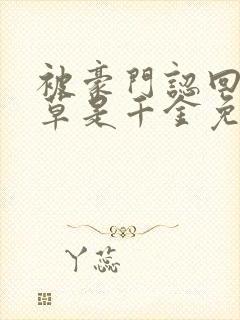 被豪門認回
草是千金免
丫蕊